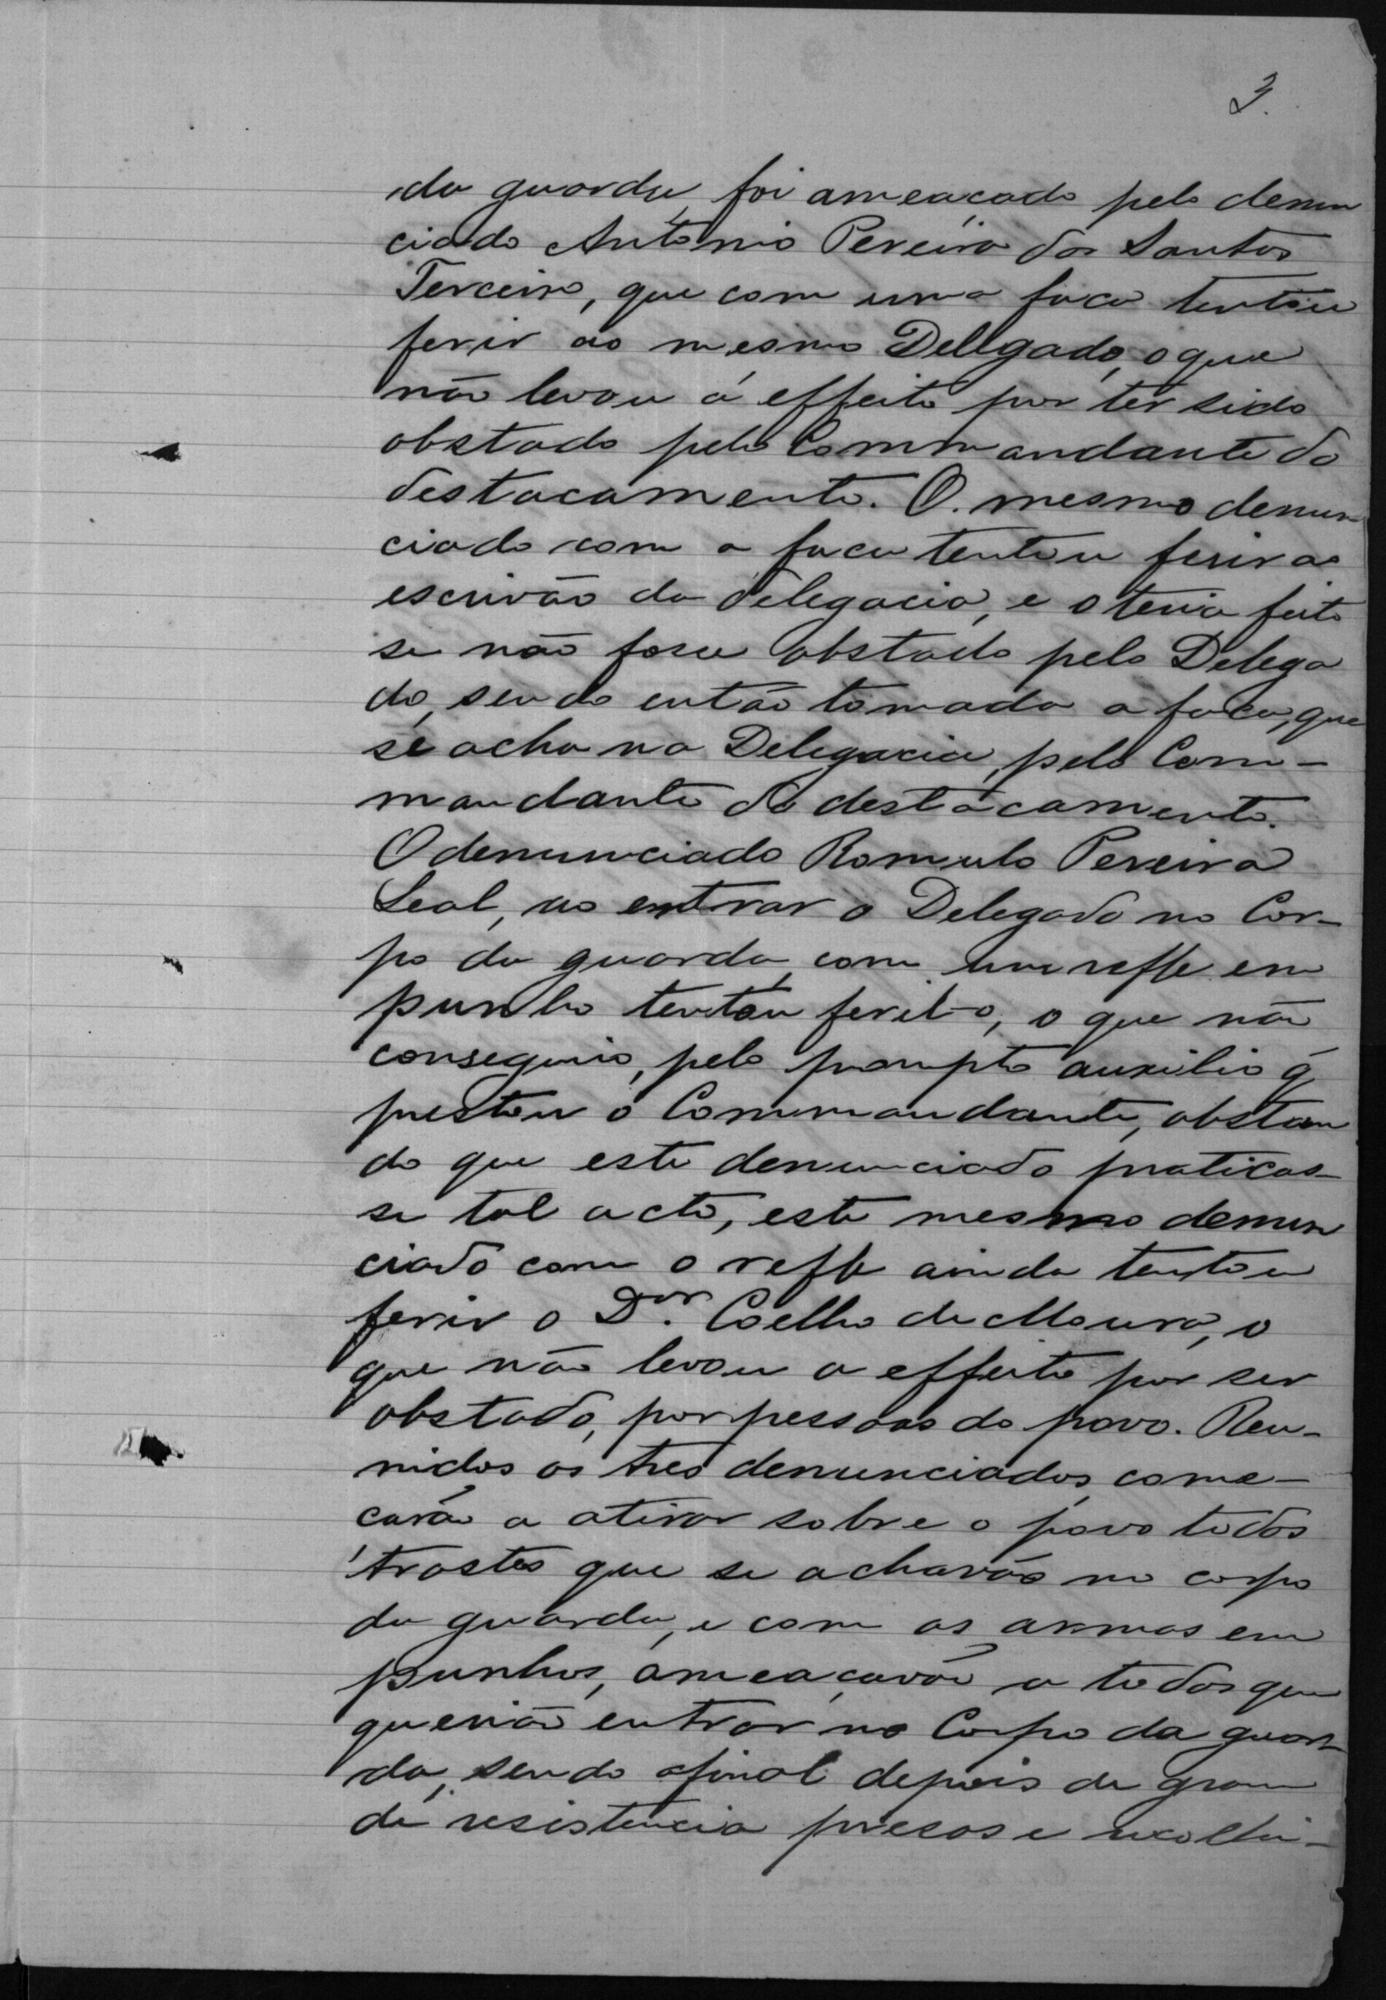 3.
da guarda, foi ameaçado pelo denun
ciado Antonio Pereira dos Santos
Terceiro, que com uma faca tentou
ferir ao mesmo Delegado, o que
não levou á effeito por ter sido
obstado pelo Commandante do
destacamento. O mesmo denun
ciado com a faca tentou ferir ao
escrivão da delegacia, e o teria feito
se não fosse obstado pelo Delega
do, sendo então tomada a faca, que
se acha na Delegacia, pelo Com-
mandante do destacamento.
O denunciado Romulo Pereira
Leal, ao entrar o Delegado no Cor-
po da guarda, com um refle em
punho tentou feril-o, o que não
conseguio, pelo prompto auxilio q̃
prestou o Commandante, obstan
do que este denunciado praticas-
se tal acto, este mesmo denun
ciado com o refle ainda tentou
ferir o Dor. Coelho de Moura, o
que não levou a effeito por ser
obstado, por pessoas do povo. Reu-
nidos os tres denunciados, come-
çarão a atirar sobre o povo todos
trastes que se achavão no corpo
da guarda, e com as armas em
punhos, ameaçavão a todos que
querião entrar no Corpo da guar-
da, sendo afinal depois de gran
de resistencia presos e recolhi-